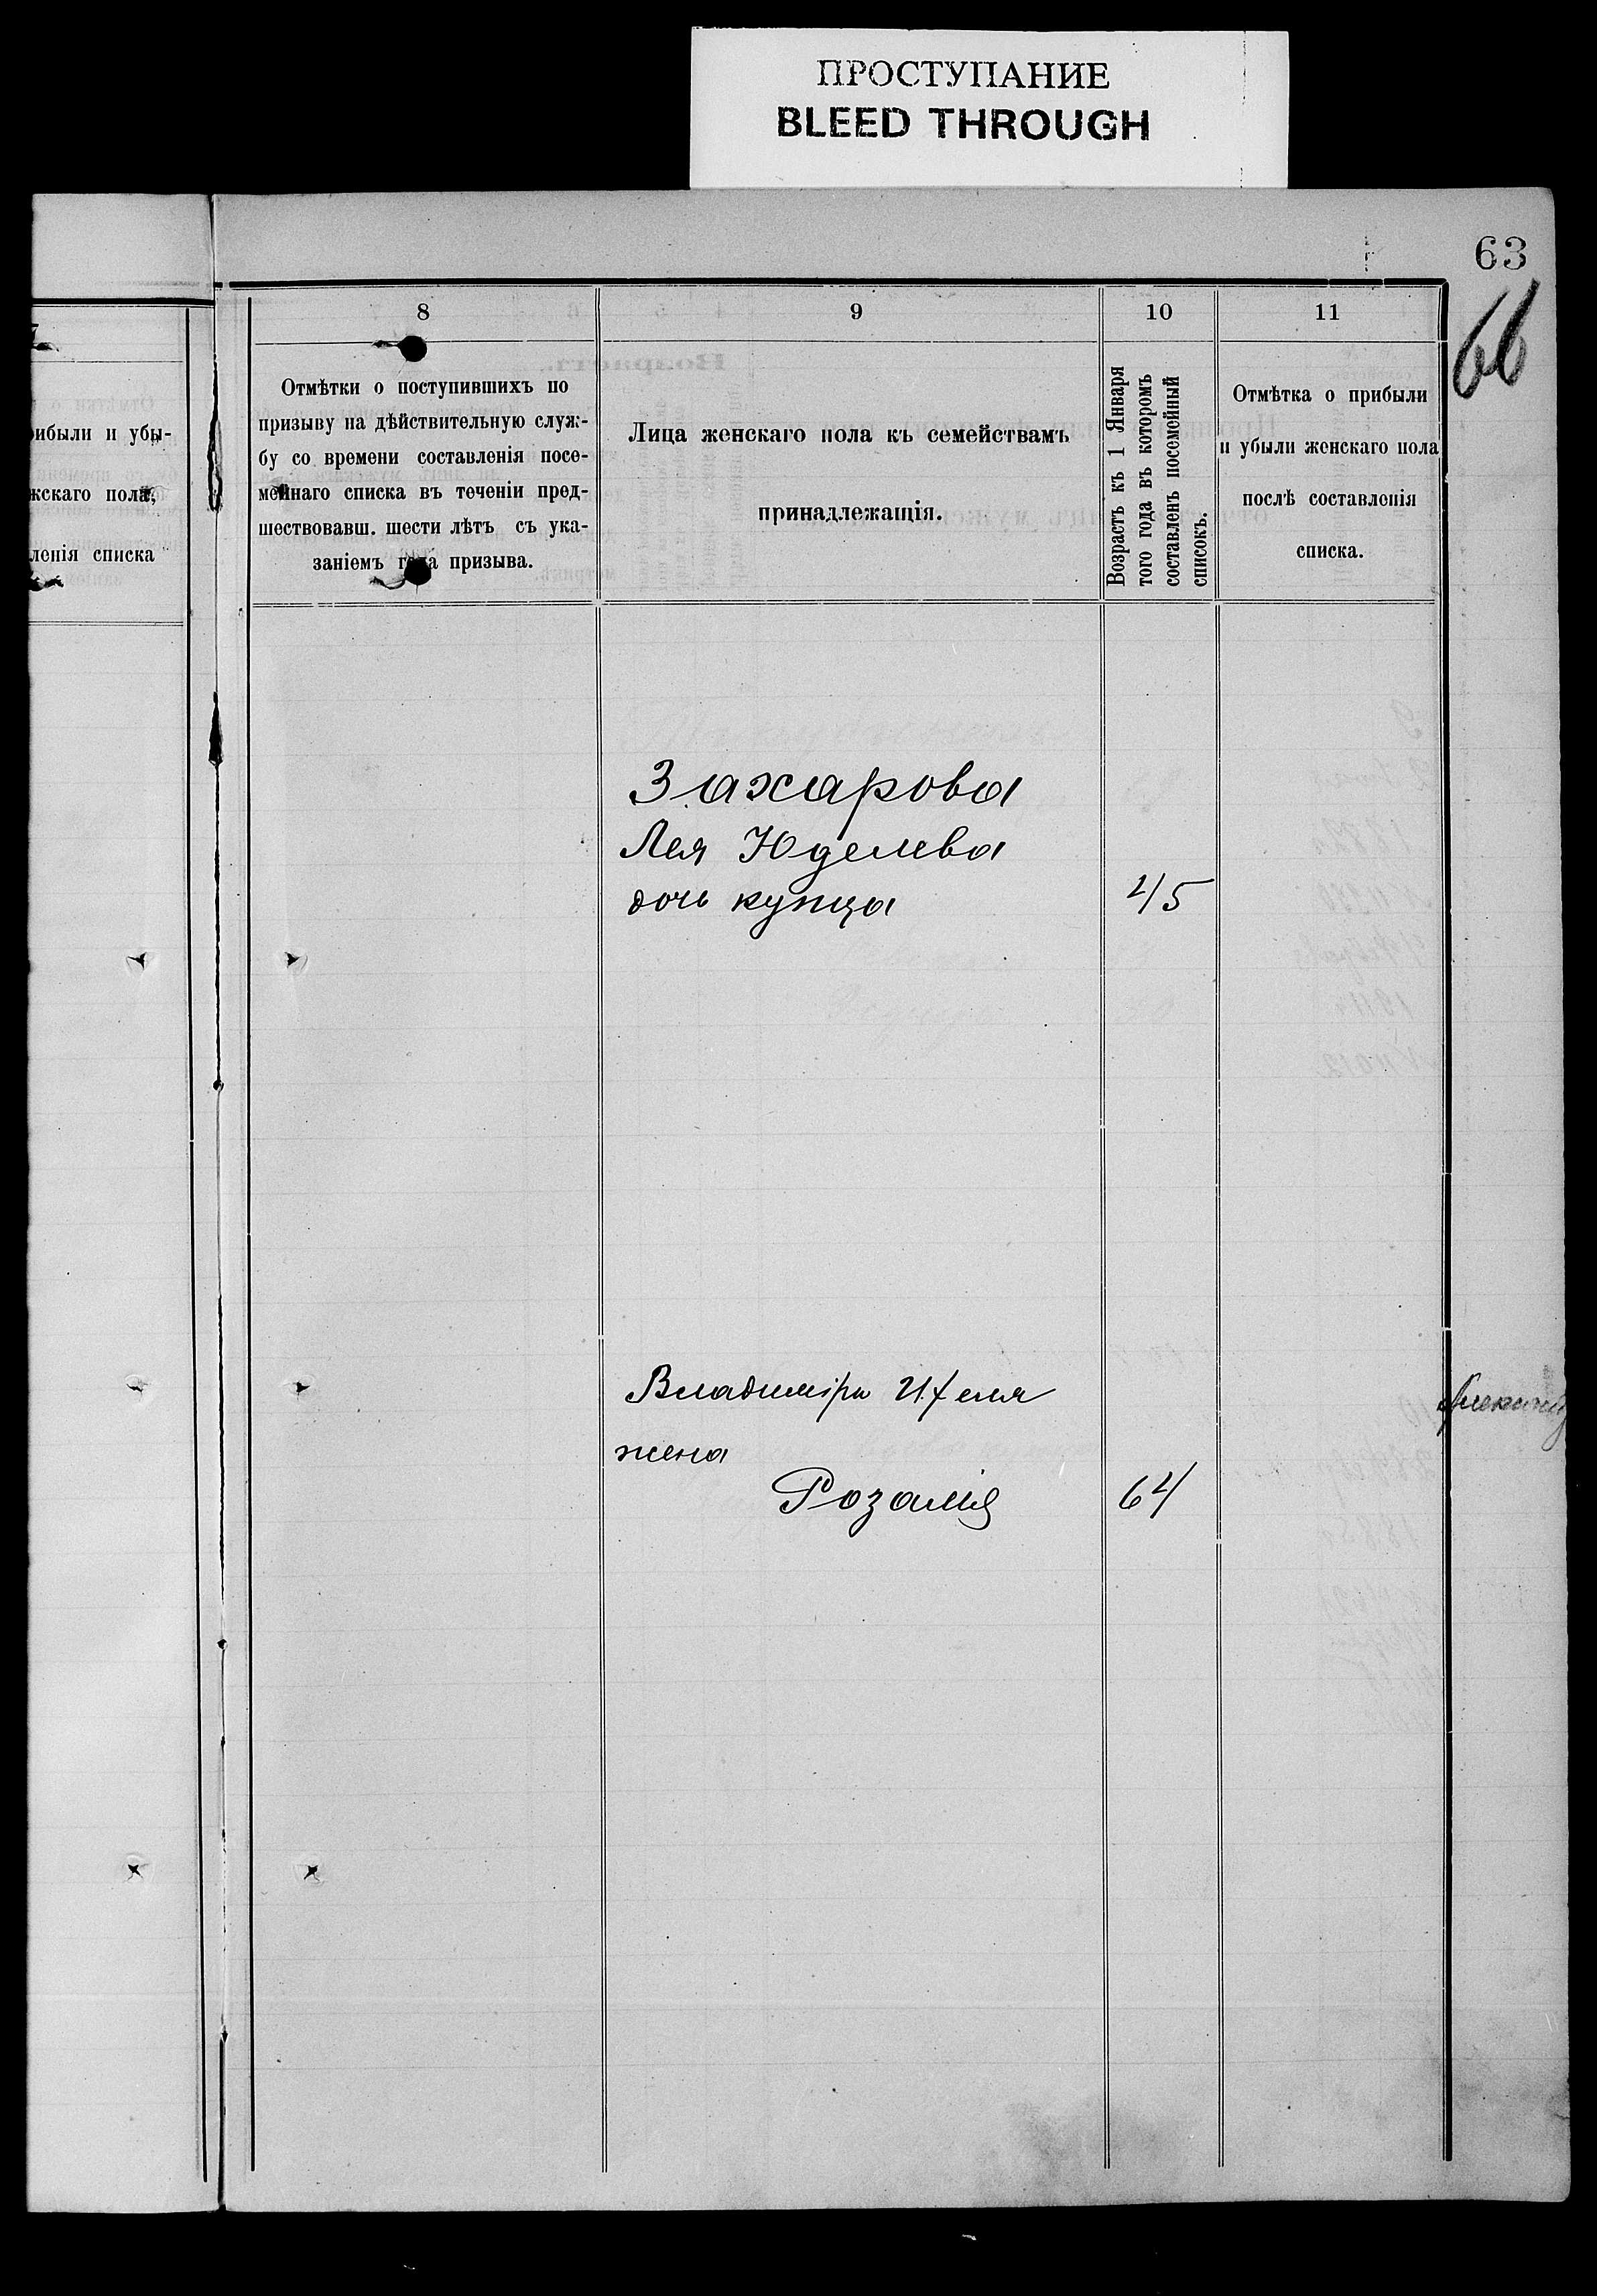 ПРОСТУПАНИЕ
BLEED THROUGH
63
66
ибыли и убы-
жскаго пола,
ленія списка
8
Отмѣтки о поступившихъ по
призыву на дѣйствительную служ-
бу со времени составленія посе-
мейнаго списка въ теченіи пред-
шествовавш. шести лѣтъ съ ука-
заніемъ года призыва.
9
Лица женскаго пола къ семействамъ
принадлежащія.
10
Возрастъ къ 1 Января
того года въ которомъ
составленъ посемейный
списокъ.
11
Отмѣтка о прибыли
и убыли женскаго пола
послѣ составленія
списка.
Захарова
Лея Юделева
дочь купца 45
Владиміра
жена
Розалія 64